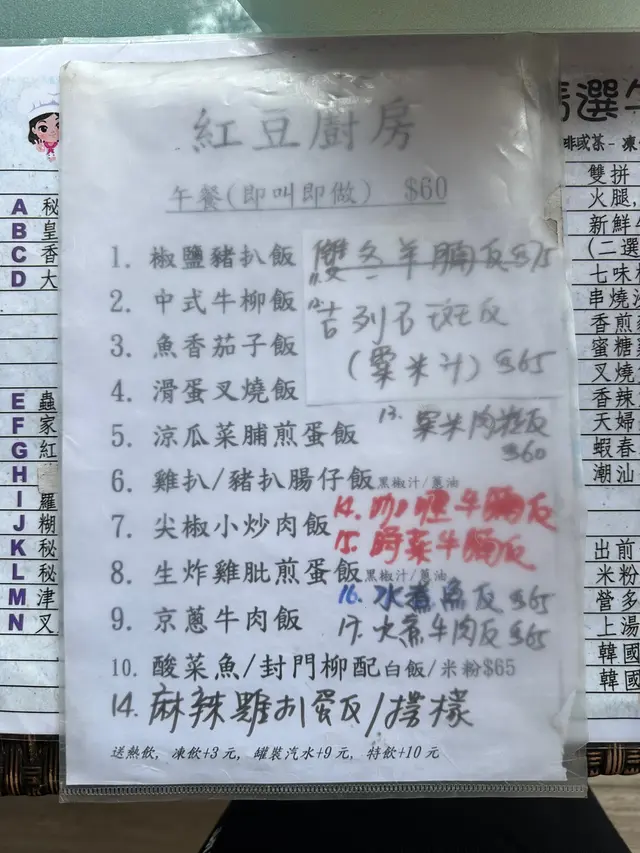 紅豆廚房
午餐(即叫即做) $60
1. 椒鹽豬扒飯
2. 中式牛柳飯
3. 魚香茄子飯
4. 滑蛋叉燒飯
5. 涼瓜菜脯煎蛋飯
6. 雞扒/豬扒腸仔飯 黑椒汁/蔥油
7. 尖椒小炒肉飯
8. 生炸雞肶煎蛋飯 黑椒汁/蔥油
9. 京蔥牛肉飯
10. 酸菜魚/封門柳配白飯/米粉$65
14. 麻辣雞扒蛋反/檬
送熱飲, 凍飲+3元, 罐裝汽水+9元, 特飲+10元
雙冬羊腩反$75
12. 吉列石斑反
(粟米汁) $65
13. 粟米肉粒反
$60
14. 咖喱牛腩反
15. 時菜牛腩反
16. 水煮魚反 $65
17. 水煮牛肉反 $65
A 秘
B 皇
C 香
D 大
E 蟲
F 家
G 紅
H
I 羅
J 糊
K 秘
L 秘
M 津
N 叉
選
啡或茶 - 凍
雙拼
火腿,
新鮮
(二選
七味
串燒
香煎
蜜糖
叉燒
香辣
天婦
蝦春
潮汕
出前
米粉
營多
上湯
韓國
韓國